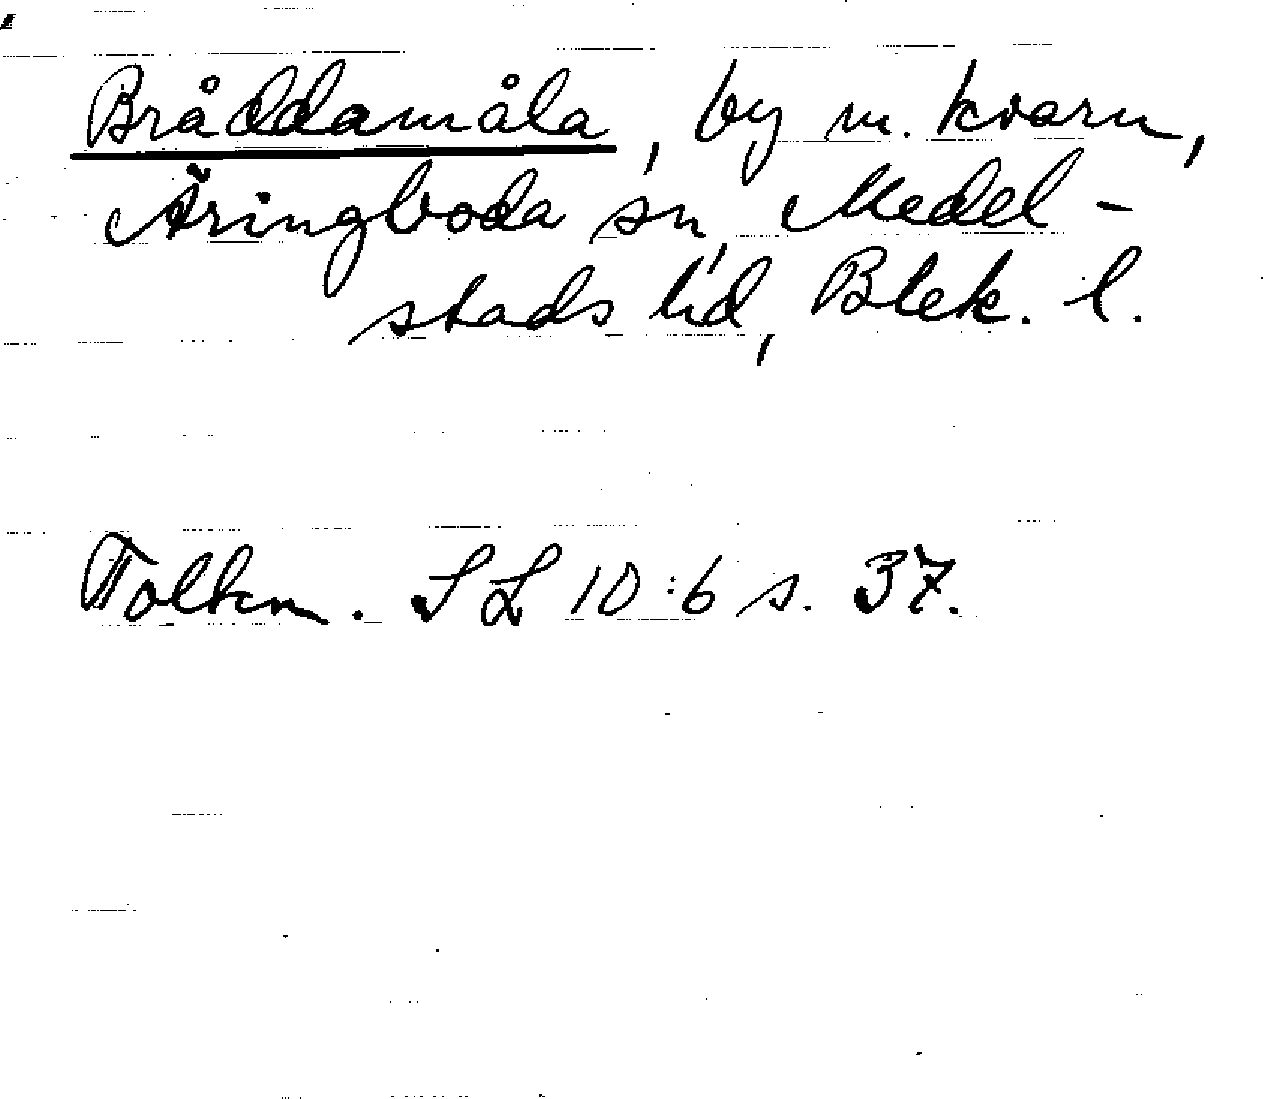 Bråddamåla, by m. kvarn,
Äringboda sn, Medel-
stads hd, Blek. l.
Folkm. SL 10:6 s. 37.